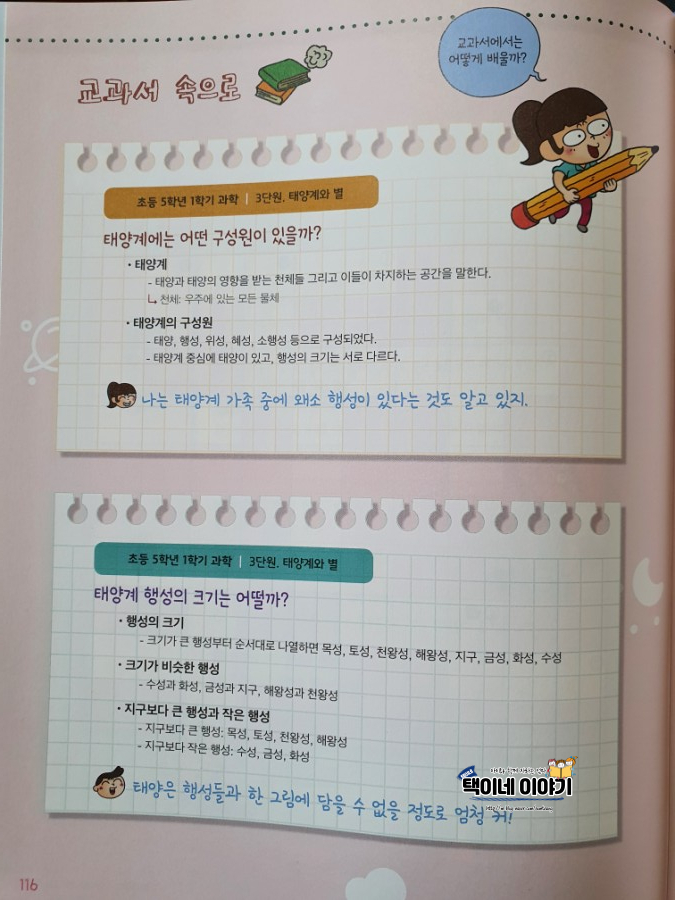 교과서에서는
어떻게 배울까?
교과서 속으로
초등 5학년 1학기 과학 | 3단원. 태양계와 별
태양계에는 어떤 구성원이 있을까?
· 태양계
- 태양과 태양의 영향을 받는 천체들 그리고 이들이 차지하는 공간을 말한다.
천체: 우주에 있는 모든 물체
· 태양계의 구성원
- 태양, 행성, 위성, 혜성, 소행성 등으로 구성되었다.
- 태양계 중심에 태양이 있고, 행성의 크기는 서로 다르다.
나는 태양계 가족 중에 왜소 행성이 있다는 것도 알고 있지.
초등 5학년 1학기 과학 | 3단원. 태양계와 별
태양계 행성의 크기는 어떨까?
· 행성의 크기
- 크기가 큰 행성부터 순서대로 나열하면 목성, 토성, 천왕성, 해왕성, 지구, 금성, 화성, 수성
· 크기가 비슷한 행성
- 수성과 화성, 금성과 지구, 해왕성과 천왕성
· 지구보다 큰 행성과 작은 행성
- 지구보다 큰 행성: 목성, 토성, 천왕성, 해왕성
- 지구보다 작은 행성: 수성, 금성, 화성
택이네 이야기
태양은 행성들과 한 그림에 담을 수 없을 정도로 엄청 커!
116